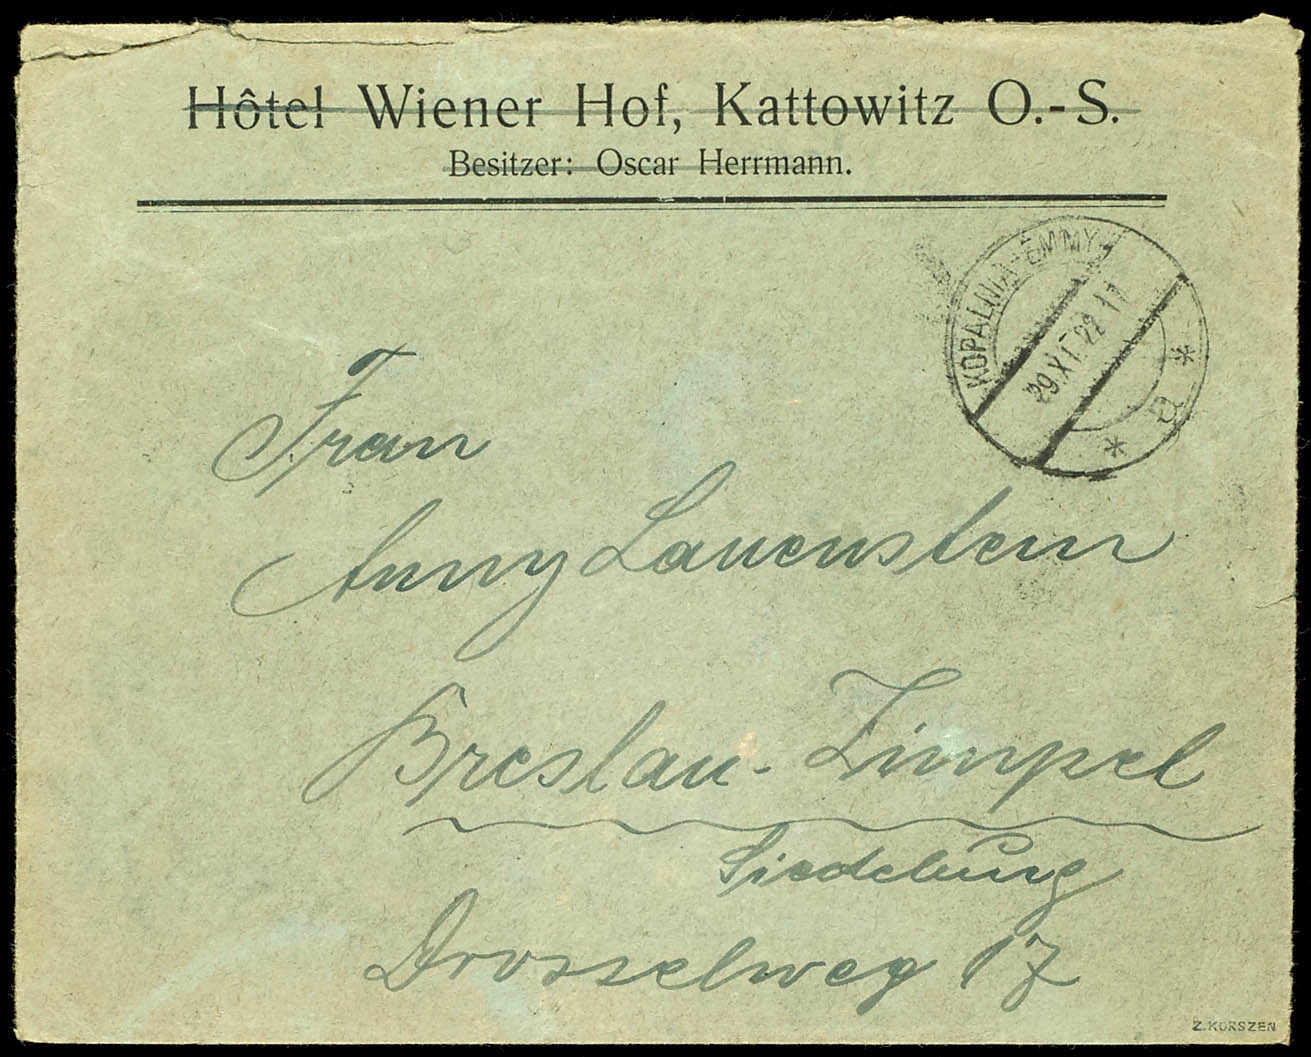 Hôtel Wiener Hof, Kattowitz O.-S.
Besitzer: Oscar Herrmann.
KOPALNIA-EMMY
29.XI.22 11
* a *
Frau
Anny Lauenstein
Breslau-Zimpel
Siedelung
Drosselweg 17
Z.KORSZEN